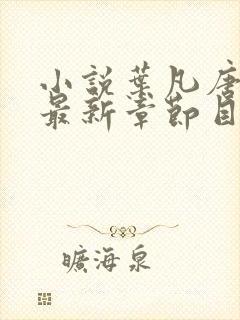 小說葉凡唐
最新章節目
曠海泉